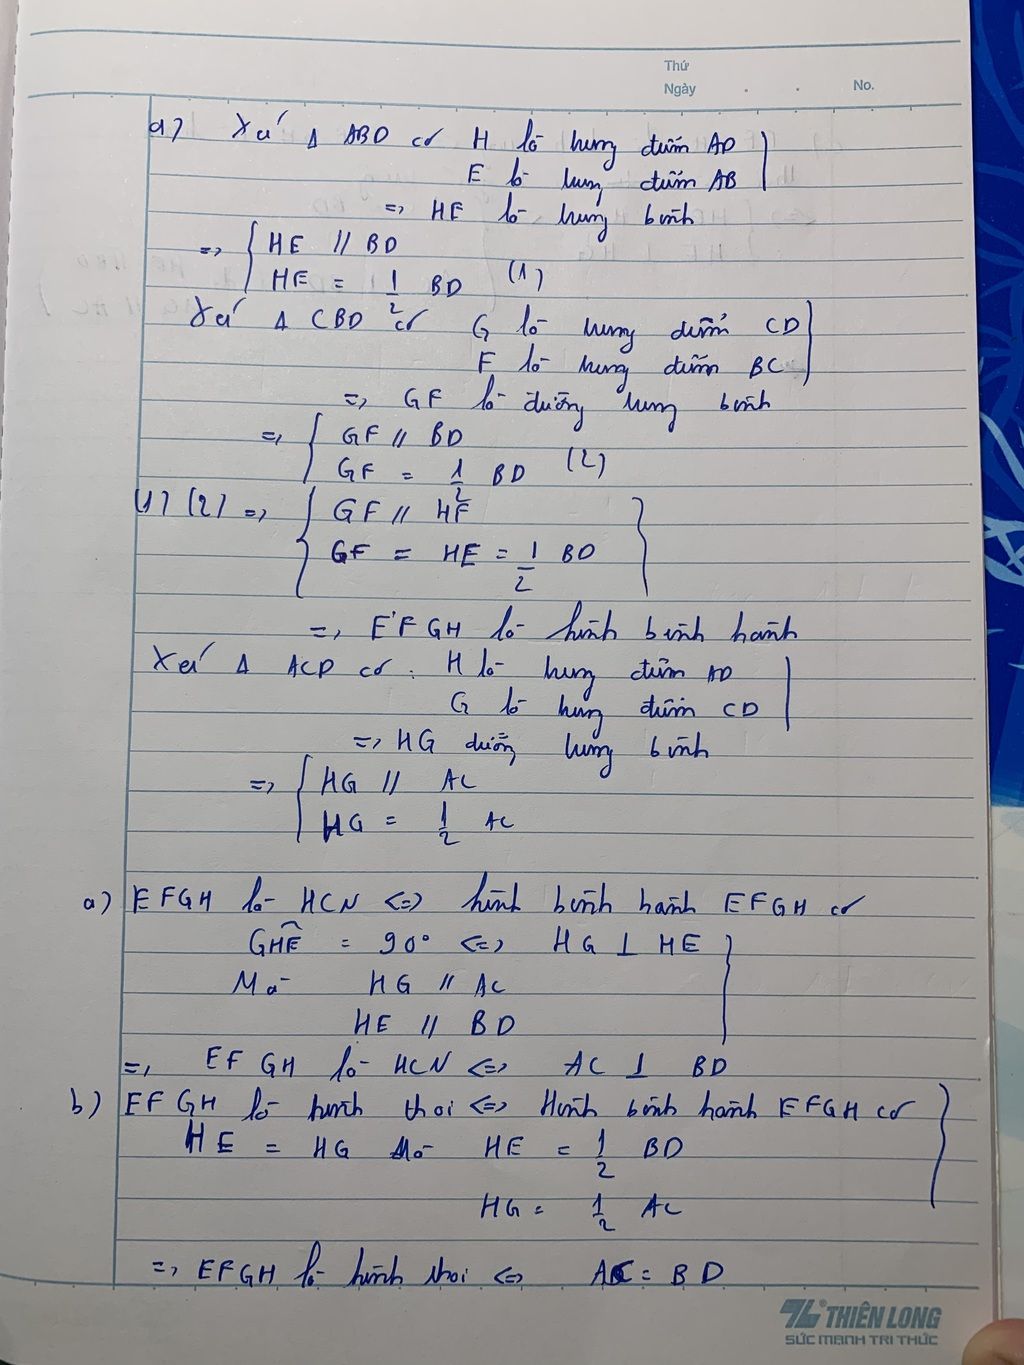 Thứ
Ngày . . No.
a) Xét Δ ABD có H là trung điểm AD
E là trung điểm AB
=> HE là trung bình
=> { HE // BD
HE = 1/2 BD (1)
Xét Δ CBD có G là trung điểm CD
F là trung điểm BC
=> GF là đường trung bình
=> { GF // BD
GF = 1/2 BD (2)
(1) (2) => { GF // HE
GF = HE = 1/2 BD
=> EFGH là hình bình hành
Xét Δ ACD có : H là trung điểm AD
G là trung điểm CD
=> HG đường trung bình
=> { HG // AC
HG = 1/2 AC
a) EFGH là HCN <=> hình bình hành EFGH có
GHE = 90° <=> HG ⊥ HE
Mà HG // AC
HE // BD
=> EFGH là HCN <=> AC ⊥ BD
b) EFGH là hình thoi <=> Hình bình hành EFGH có
HE = HG Mà HE = 1/2 BD
HG = 1/2 AC
=> EFGH là hình thoi <=> AC = BD
THIÊN LONG
SỨC MẠNH TRI THỨC